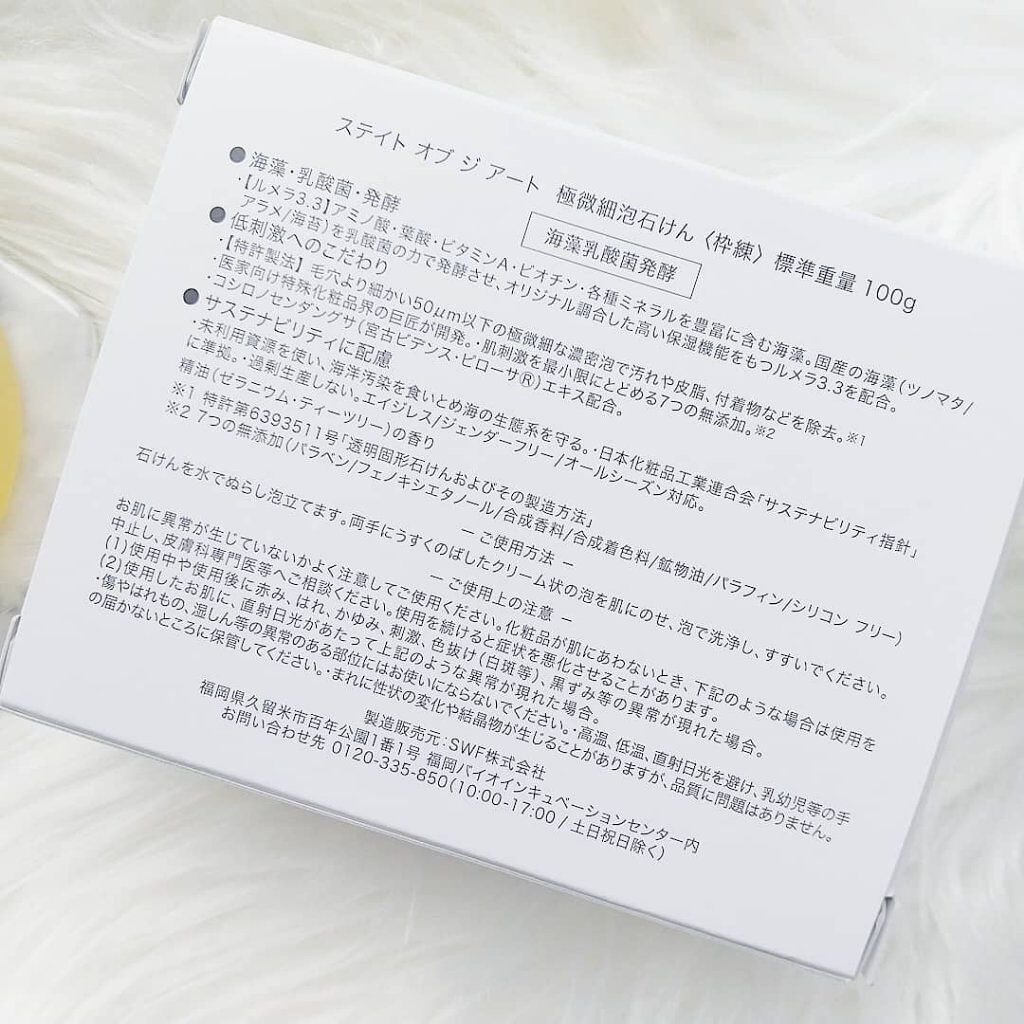 ステイト オブ ジ アート 極微細泡石けん〈枠練〉標準重量 100g
海藻乳酸菌発酵
●海藻・乳酸菌・発酵
・【ルメラ3.3】アミノ酸・葉酸・ビタミンA・ビオチン・各種ミネラルを豊富に含む海藻。国産の海藻(ツノマタ/
アラメ/海苔)を乳酸菌の力で発酵させ、オリジナル調合した高い保湿機能をもつルメラ3.3を配合。
●低刺激へのこだわり
・【特許製法】毛穴より細かい50μm以下の極微細な濃密泡で汚れや皮脂、付着物などを除去。※1
・医家向け特殊化粧品界の巨匠が開発。・肌刺激を最小限にとどめる7つの無添加。※2
・コシロノセンダングサ(宮古ビデンス・ピローサ®)エキス配合。
●サステナビリティに配慮
・未利用資源を使い、海洋汚染を食いとめ海の生態系を守る。・日本化粧品工業連合会「サステナビリティ指針」
に準拠。・過剰生産しない。エイジレス/ジェンダーフリー/オールシーズン対応。
精油(ゼラニウム・ティーツリー)の香り
※1 特許第6393511号「透明固形石けんおよびその製造方法」
※2 7つの無添加(パラベン/フェノキシエタノール/合成香料/合成着色料/鉱物油/パラフィン/シリコン フリー)
― ご使用方法 ―
石けんを水でぬらし泡立てます。両手にうすくのばしたクリーム状の泡を肌にのせ、泡で洗浄し、すすいでください。
― ご使用上の注意 ―
お肌に異常が生じていないかよく注意してご使用ください。化粧品が肌にあわないとき、下記のような場合は使用を
中止し、皮膚科専門医等へご相談ください。使用を続けると症状を悪化させることがあります。
(1)使用中や使用後に赤み、はれ、かゆみ、刺激、色抜け(白斑等)、黒ずみ等の異常が現れた場合。
(2)使用したお肌に、直射日光があたって上記のような異常が現れた場合。
・傷やはれもの、湿しん等の異常のある部位にはお使いにならないでください。・高温、低温、直射日光を避け、乳幼児等の手
の届かないところに保管してください。・まれに性状の変化や結晶物が生じることがありますが、品質に問題はありません。
製造販売元:SWF株式会社
福岡県久留米市百年公園1番1号 福岡バイオインキュベーションセンター内
お問い合わせ先 0120-335-850(10:00-17:00 / 土日祝日除く)